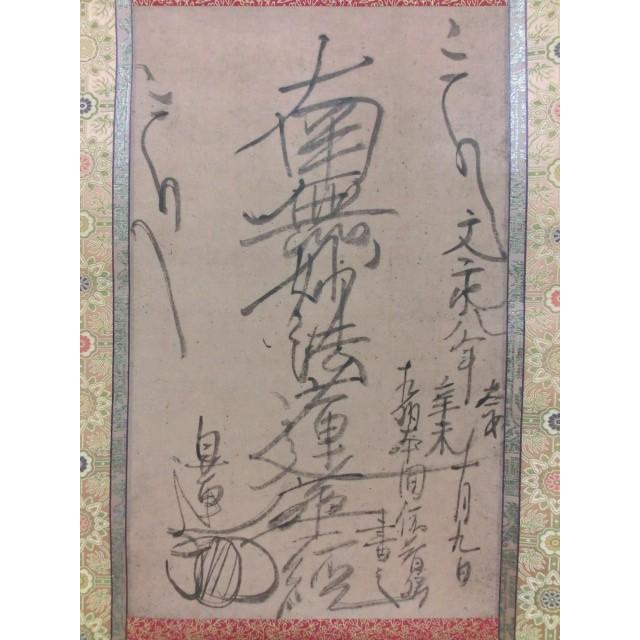 文永八年
太才
辛未
十月九日
相州本間依智郷
書之
南無妙法蓮華經
日蓮